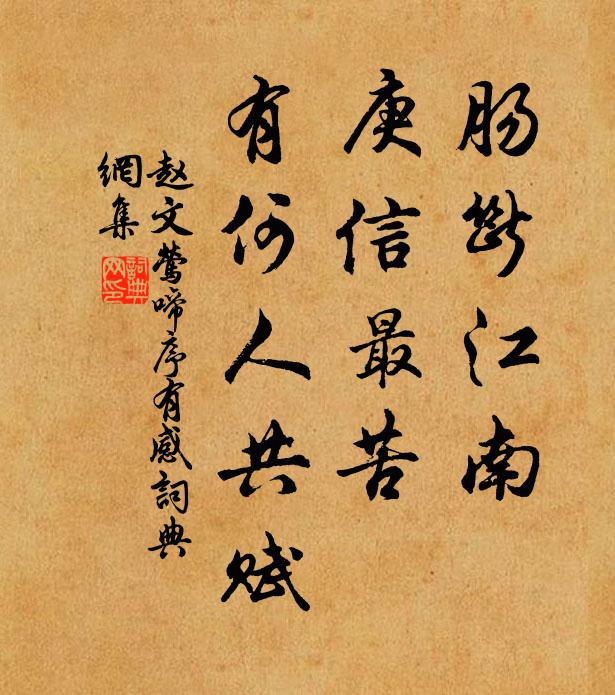 肠斷江南
庾信最苦
有何人共赋
赵文鶯啼序有感詞典
網集
詞典
网印